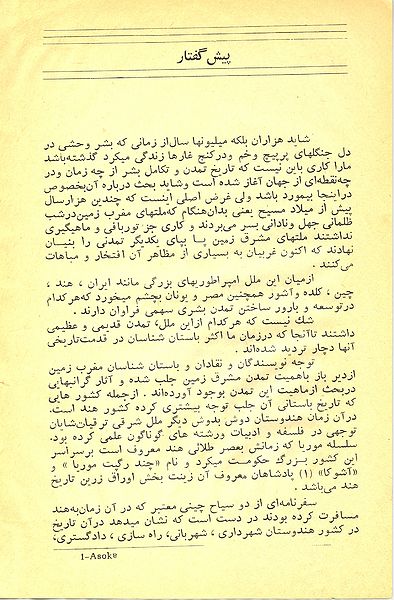 پیش گفتار
شاید هزاران بلکه میلیونها سال‌از زمانی که بشر وحشی در
دل جنگلهای پرپیچ وخم ودرکنج غارها زندگی میکرد گذشته‌باشد
مارا کاری باین نیست که تاریخ تمدن و تکامل بشر از چه زمان ودر
چه‌نقطه‌ای از جهان آغاز شده است وشاید بحث درباره آن‌بخصوص
دراینجا بیمورد باشد ولی غرض اصلی اینست که چندین هزارسال
پیش از میلاد مسیح یعنی بدان‌هنگام که‌ملتهای مغرب زمین‌درشب
ظلمانی جهل ونادانی بسر می‌بردند و کاری جز توربافی و ماهیگیری
نداشتند ملتهای مشرق زمین پا بپای یکدیگر تمدنی را بنیان
نهادند که اکنون غربیان به بسیاری از مظاهر آن افتخار و مباهات
می‌کنند .
ازمیان این ملل امپراطوریهای بزرگی مانند ایران ، هند ،
چین ، کلده وآشور همچنین مصر و یونان بچشم میخورد که‌هرکدام
درتوسعه و بارور ساختن تمدن بشری سهمی فراوان دارند .
شك نیست که هرکدام ازاین‌ملل، تمدن قدیمی و عظیمی
داشتند تاآنجا که درزمان ما اکثر باستان شناسان در قدمت‌تاریخی
آنها دچار تردید شده‌اند .
توجه نویسندگان و نقادان و باستان شناسان مغرب زمین
ازدیر باز باهمیت تمدن مشرق زمین جلب شده و آثار گرانبهایی
دربحث ازماهیت این تمدن بوجود آورده‌اند . ازجمله کشور هایی
که تاریخ باستانی آن جلب توجه بیشتری کرده کشور هند است.
درآن زمان هندوستان دوش بدوش دیگر ملل شرقی ترقیات‌شایان
توجهی در فلسفه و ادبیات ورشته های گوناگون علمی کرده بود.
سلسله موریا که زمانش بعصر طلائی هند معروف است برسراسر
این کشور بزرگ حکومت میکرد و نام «چند رگپت موریا » و
«آشوکا» (۱) پادشاهان معروف آن زینت بخش اوراق زرین تاریخ
هند می‌باشد .
سفرنامه‌ای از دو سیاح چینی معتبر که در آن زمان‌به‌هند
مسافرت کرده بودند در دست است که نشان میدهد درآن تاریخ
در کشور هندوستان شهرداری ، شهربانی، راه سازی ، دادگستری،
1-Asoke